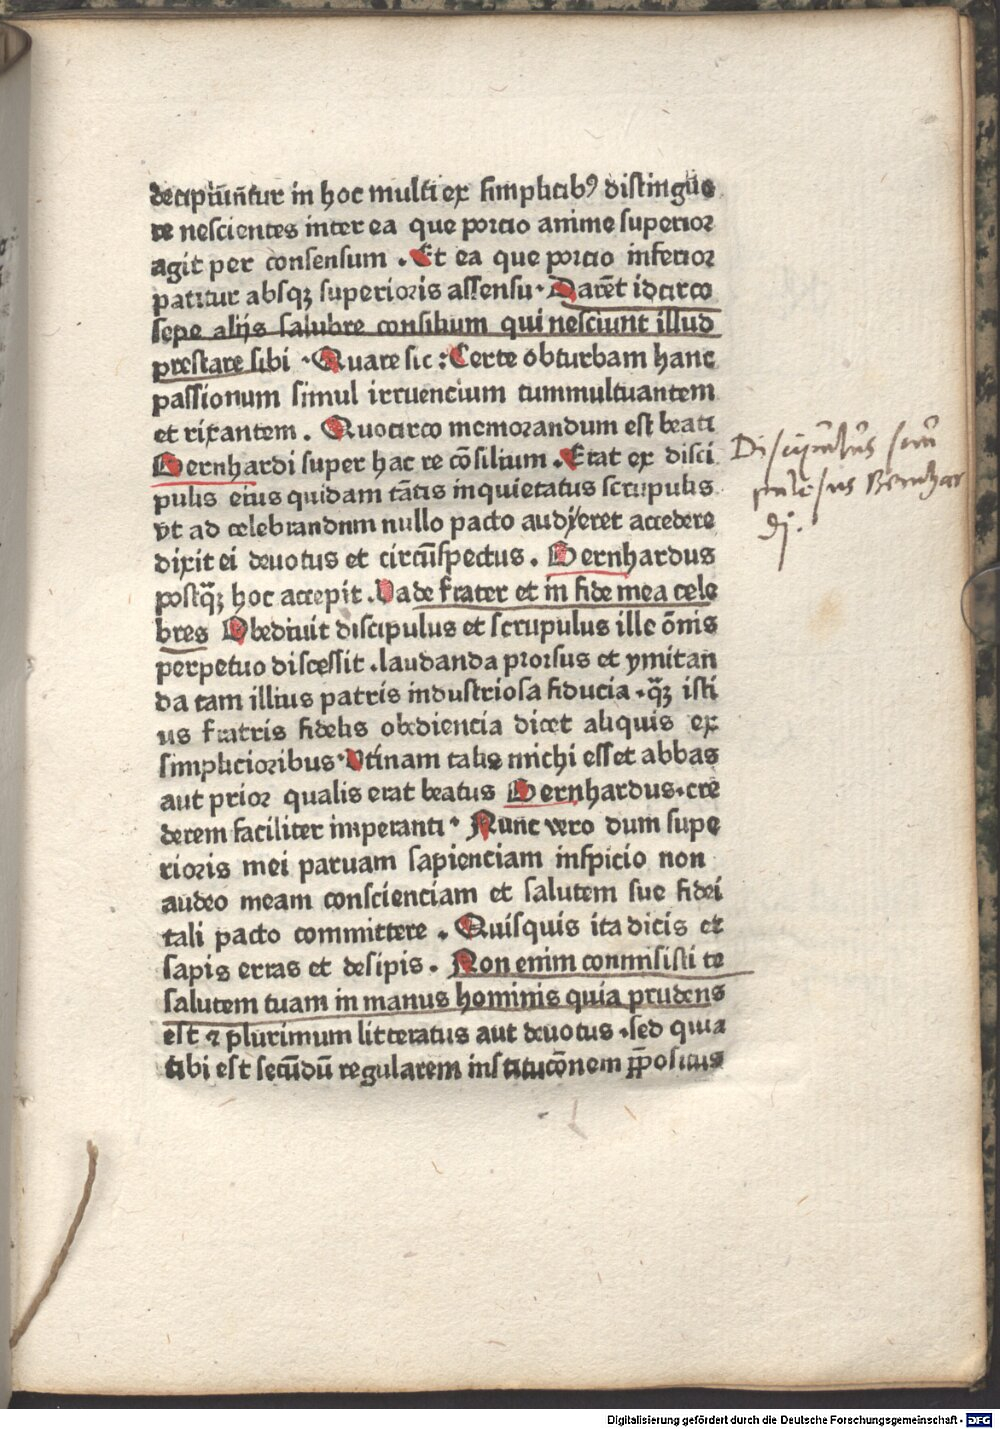 decipiūntur in hoc multi ex simplicibꝰ distingue
re nescientes inter ea que porcio anime superior
agit per consensum . Et ea que porcio inferior
patitur absqȝ superioris assensu . Darēt idcirco
sepe alijs salubre consilium qui nesciunt illud
prestare sibi . Quare sic : Certe obturbam hanc
passionum simul irruencium tummultuantem
et rixantem . Quocirco memorandum est beati
Bernhardi super hac re cōsilium . Erat ex disci
pulis eius quidam tātis inquietatus scrupulis
vt ad celebrandnm nullo pacto auderet accedere
dixit ei deuotus et circūspectus . Bernhardus
postqȝ hoc accepit . Vade frater et in fide mea cele
bres Obediuit discipulus et scrupulus ille ōnis
perpetuo discessit . laudanda prorsus et ymitan
da tam illius patris industriosa fiducia . qȝ isti
us fratris fidelis obediencia dicet aliquis ex
simplicioribus . Vtinam talis michi esset abbas
aut prior qualis erat beatus Bernhardus . cre
derem faciliter imperanti . Nunc vero dum supe
rioris mei paruam sapienciam inspicio non
audeo meam conscienciam et salutem sue fidei
tali pacto committere . Quisquis ita dicis et
sapis erras et desipis . Non enim conmisisti te
salutem tuam in manus hominis quia prudens
est ⁊ plurimum litteratus aut deuotus . sed quia
tibi est secūdū regularem institucōnem ꝓpositus
Bernhar
dj.
Digitalisierung gefördert durch die Deutsche Forschungsgemeinschaft - DFG